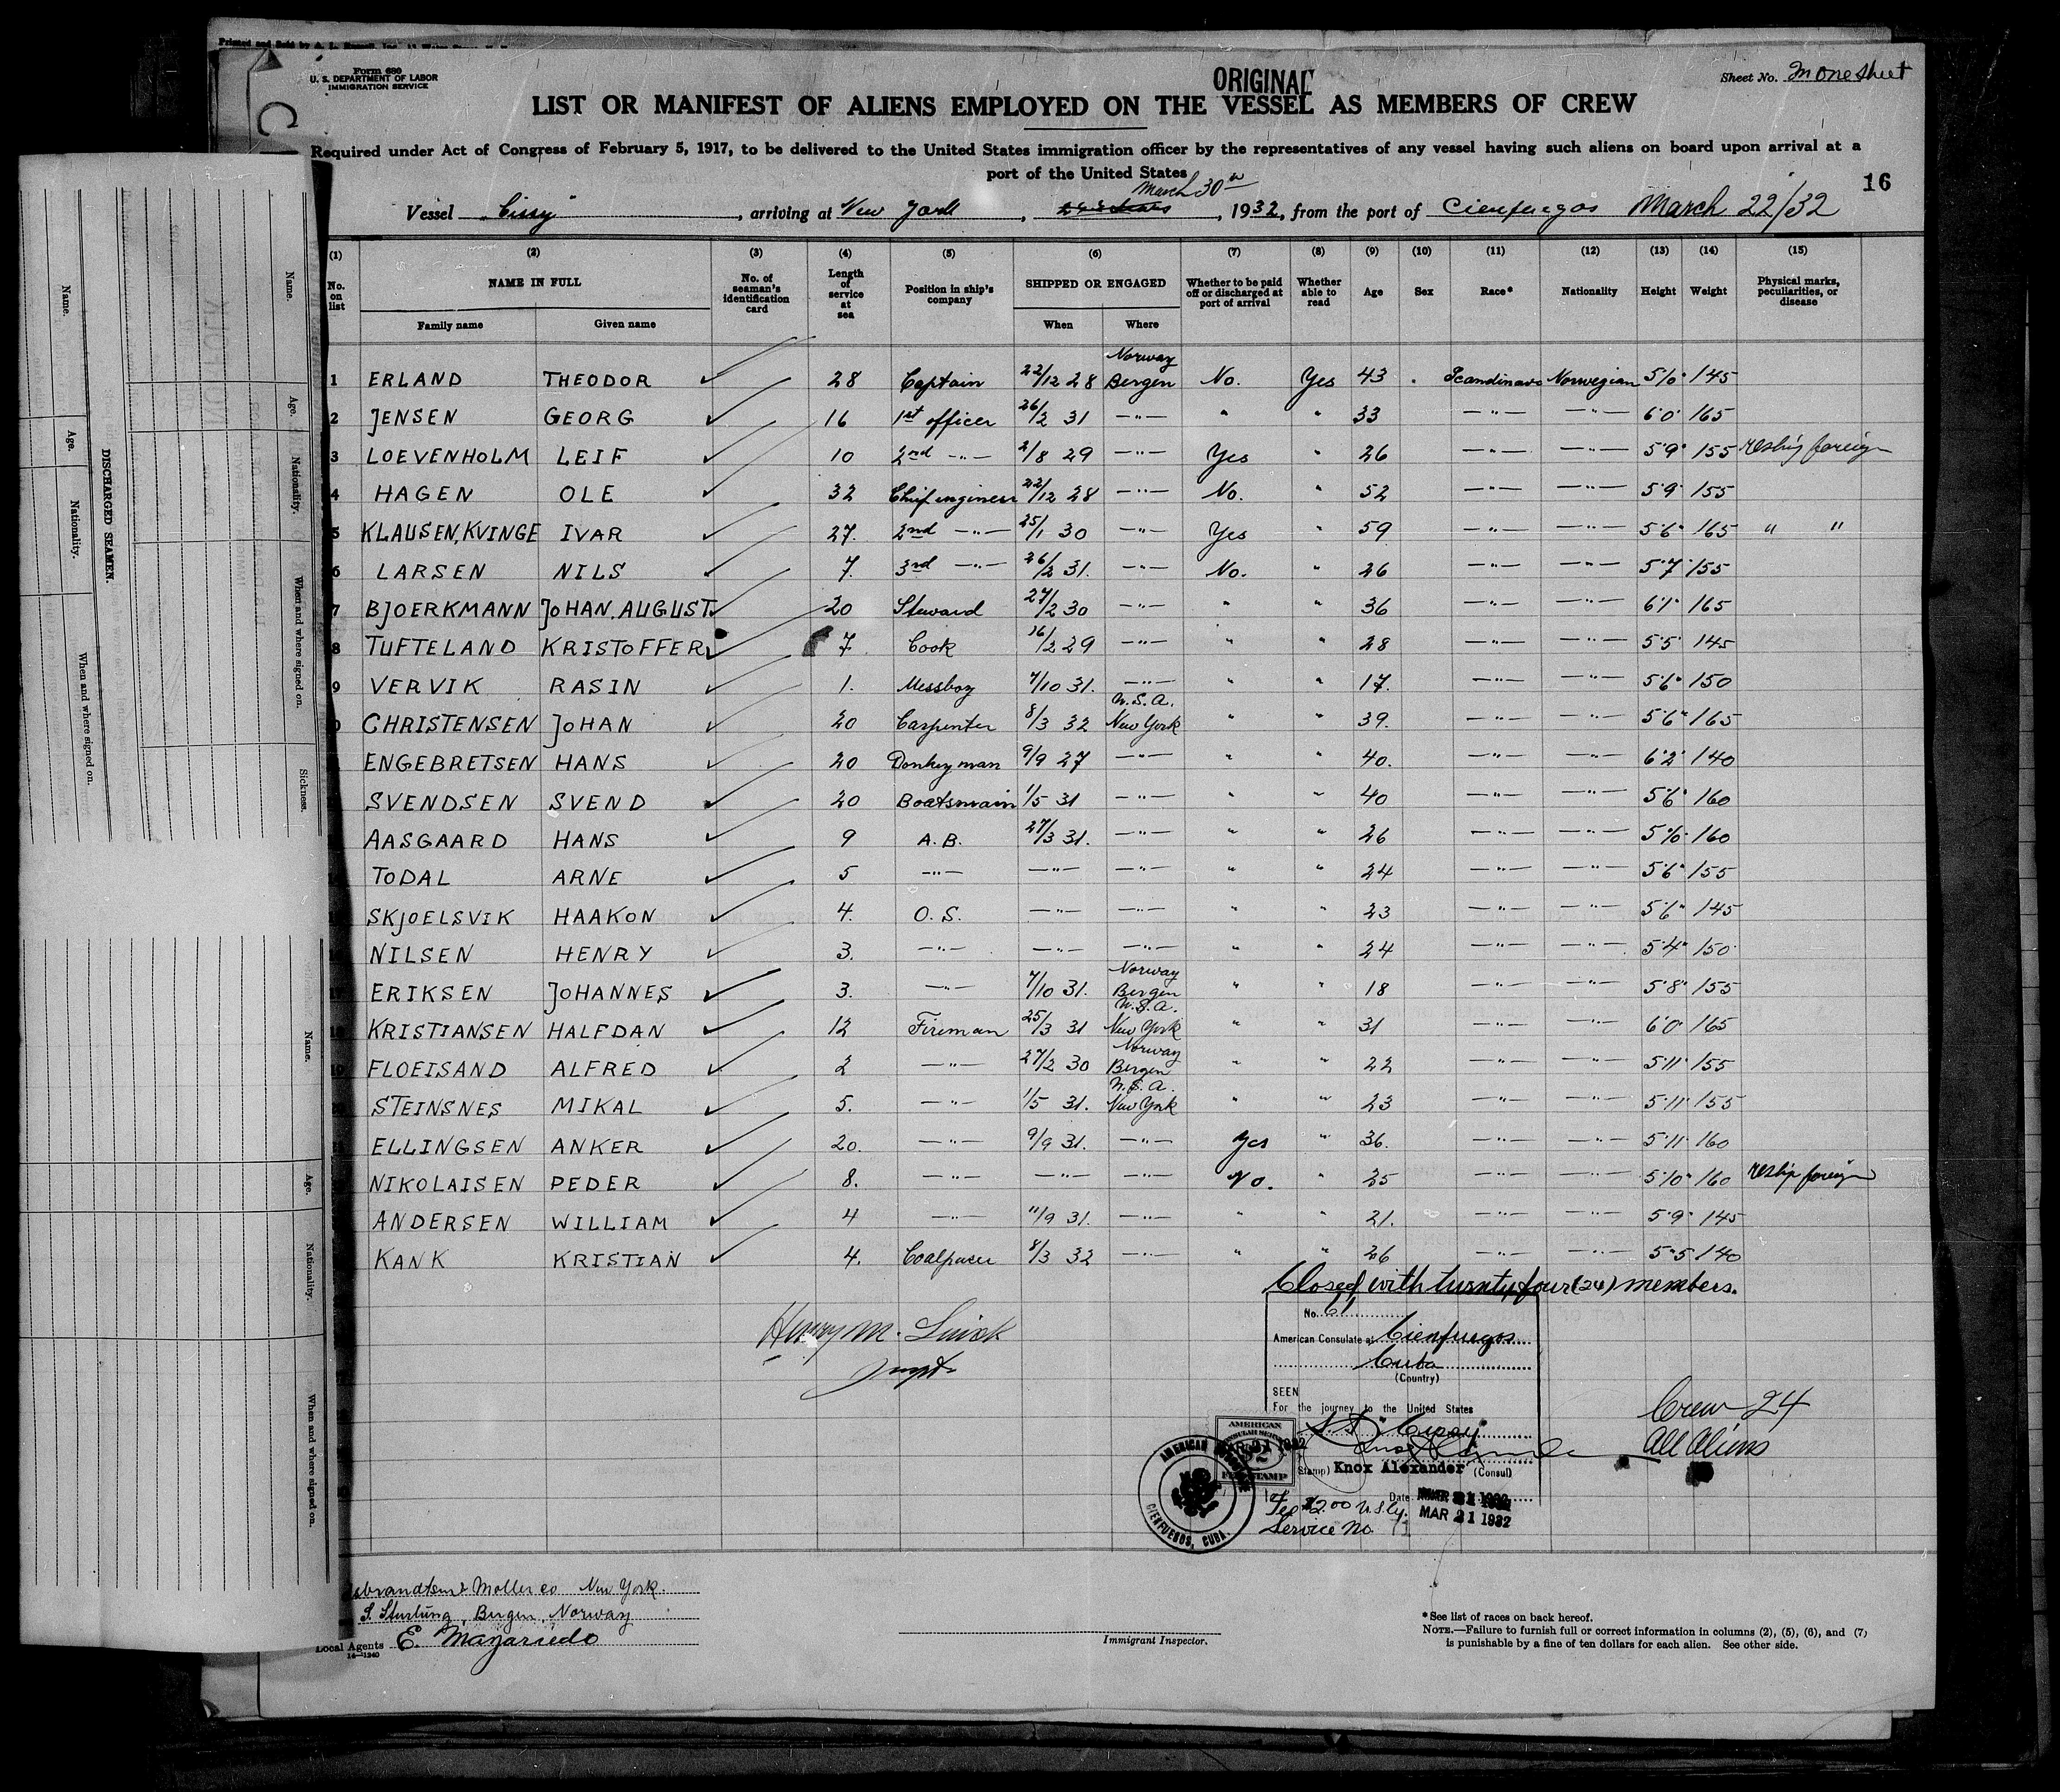 Form 680
U. S. DEPARTMENT OF LABOR
IMMIGRATION SERVICE
ORIGINAL
Sheet No. In one sheet
LIST OR MANIFEST OF ALIENS EMPLOYED ON THE VESSEL AS MEMBERS OF CREW
Required under Act of Congress of February 5, 1917, to be delivered to the United States immigration officer by the representatives of any vessel having such aliens on board upon arrival at a
port of the United States
16
March 30th
Vessel "Cissy", arriving at New York, 1932, from the port of Cienfuegos March 22/32
(1) (2) (3) (4) (5) (6) (7) (8) (9) (10) (11) (12) (13) (14) (15)
No. on list NAME IN FULL No. of seaman's identification card Length of service at sea Position in ship's company SHIPPED OR ENGAGED Whether to be paid off or discharged at port of arrival Whether able to read Age Sex Race* Nationality Height Weight Physical marks, peculiarities, or disease
Family name Given name When Where
1 ERLAND THEODOR 28 Captain 22/12 28 Norway Bergen No. Yes 43 Scandinav Norwegian 5'10" 145
2 JENSEN GEORG 16 1st officer 26/2 31 —"— " " 33 —"— —"— 6'0" 165
3 LOEVENHOLM LEIF 10 2nd —"— 2/8 29 —"— Yes " 26 —"— —"— 5'9" 155 reship foreign
4 HAGEN OLE 32 Chief engineer 22/12 28 —"— No. " 52 —"— —"— 5'9" 155
5 KLAUSEN, KVINGE IVAR 27. 2nd —"— 25/1 30 —"— Yes " 59 —"— —"— 5'6" 165 " "
6 LARSEN NILS 7. 3rd —"— 26/2 31. —"— No. " 26 —"— —"— 5'7" 155
7 BJOERKMANN JOHAN, AUGUST. 20 Steward 27/2 30 —"— " " 36 —"— —"— 6'1" 165
8 TUFTELAND KRISTOFFER 7 Cook 16/2 29 —"— " " 28 —"— —"— 5'5" 145
9 VERVIK RASIN 1. Messboy 7/10 31. —"— " " 17. —"— —"— 5'6" 150
CHRISTENSEN JOHAN 20 Carpenter 8/3 32 U.S.A. New York " " 39. —"— —"— 5'6" 165
ENGEBRETSEN HANS 20 Donkeyman 9/9 27 —"— " " 40. —"— —"— 6'2" 140
SVENDSEN SVEND 20 Boatsmain 1/5 31 —"— " " 40 —"— —"— 5'6" 160
AASGAARD HANS 9 A.B. 27/3 31. —"— " " 26 —"— —"— 5'10" 160
TODAL ARNE 5 —"— —"— —"— " " 24 —"— —"— 5'6" 155
SKJOELSVIK HAAKON 4. O.S. —"— —"— " " 23 —"— —"— 5'6" 145
NILSEN HENRY 3. —"— —"— —"— " " 24 —"— —"— 5'4" 150
17 ERIKSEN JOHANNES 3. —"— 7/10 31. Norway Bergen " " 18 —"— —"— 5'8" 155
18 KRISTIANSEN HALFDAN 12 Fireman 25/3 31 U.S.A. New York " " 31 —"— —"— 6'0" 165
19 FLOEISAND ALFRED 2 —"— 27/2 30 Norway Bergen " " 22 —"— —"— 5'11" 155
STEINSNES MIKAL 5. —"— 1/5 31. U.S.A. New York " " 23 —"— —"— 5'11" 155
ELLINGSEN ANKER 20. —"— 9/9 31. —"— Yes " 36. —"— —"— 5'11" 160
NIKOLAISEN PEDER 8. —"— —"— —"— No. " 25 —"— —"— 5'10" 160 reship foreign
ANDERSEN WILLIAM 4 —"— 11/9 31. —"— " " 21. —"— —"— 5'9" 145
KANK KRISTIAN 4. Coalpacer 8/3 32 —"— " " 26 —"— —"— 5"5 140
Closed with twenty four (24) members.
No. 61
American Consulate at Cienfuegos
Cuba
(Country)
SEEN
For the journey to the United States
S.S. "Cissy"
Knox Alexander (Consul)
Date MAR 21 1932
MAR 21 1932
Fee $2.00 U.S.Cy.
Service No. 71
AMERICAN
FEE STAMP
CIENFUEGOS, CUBA.
Henry M.
Crew 24
All Aliens
Moller co New York.
Bergen, Norway
Local Agents E.
14—1240
Immigrant Inspector.
*See list of races on back hereof.
NOTE.—Failure to furnish full or correct information in columns (2), (5), (6), and (7)
is punishable by a fine of ten dollars for each alien. See other side.
DISCHARGED SEAMEN.
Name.
Age.
Nationality.
When and where signed on.
Name.
Age.
Nationality.
When and where signed on.
Sickness.
Name.
Age.
Nationality.
When and where signed on.